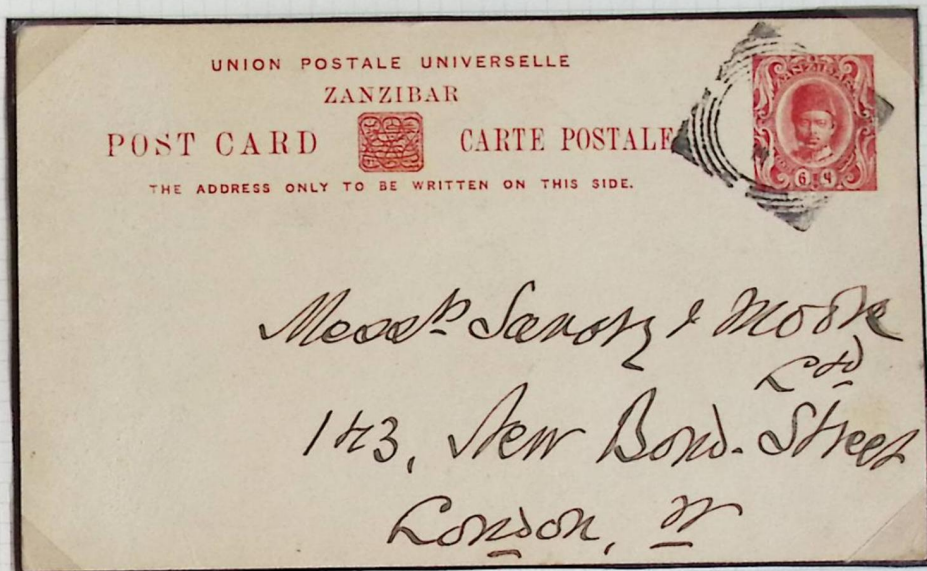 UNION POSTALE UNIVERSELLE
ZANZIBAR
POST CARD CARTE POSTALE
THE ADDRESS ONLY TO BE WRITTEN ON THIS SIDE.
ZANZIBAR
6
Messrs Savory & Moore
Ltd
143, New Bond. Street
London, W